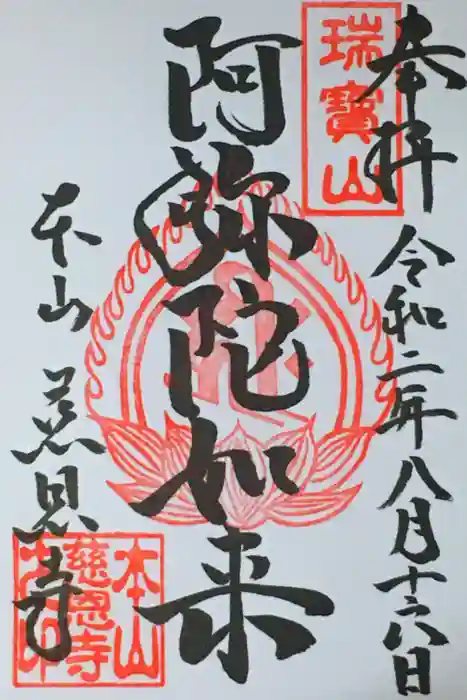 奉拝
令和二年八月十六日
瑞寶山
阿弥陀如来
本山 慈恩寺
本山
慈恩寺
印